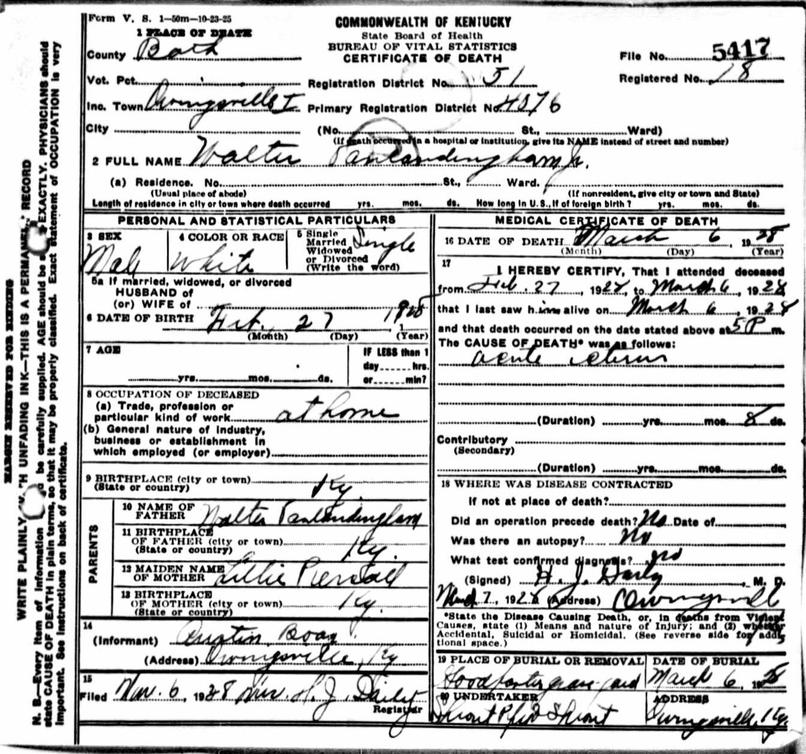 Form V. S. 1—50m—10-23-25
COMMONWEALTH OF KENTUCKY
State Board of Health
BUREAU OF VITAL STATISTICS
CERTIFICATE OF DEATH
1 PLACE OF DEATH
County Bath
File No. 5417
Vot. Pct.
Registration District No. 51
Registered No. 18
Inc. Town Owingsville I
Primary Registration District No. 4376
City (No. St., Ward)
(If death occurred in a hospital or institution, give its NAME instead of street and number)
2 FULL NAME Walter Vanlandingham Jr.
(a) Residence. No. St., Ward.
(Usual place of abode) (If nonresident, give city or town and State)
Length of residence in city or town where death occurred yrs. mos. ds. How long in U.S., if of foreign birth? yrs. mos. ds.
PERSONAL AND STATISTICAL PARTICULARS
3 SEX
Male
4 COLOR OR RACE
White
5 Single
Married
Widowed
or Divorced
(Write the word)
Single
5a If married, widowed, or divorced
HUSBAND of
(or) WIFE of
6 DATE OF BIRTH Feb. 27 1928
(Month) (Day) (Year)
7 AGE
yrs. mos. ds.
IF LESS than 1
day hrs.
or min?
8 OCCUPATION OF DECEASED
(a) Trade, profession or
particular kind of work at home
(b) General nature of industry,
business or establishment in
which employed (or employer)
9 BIRTHPLACE (city or town)
(State or country) Ky
PARENTS
10 NAME OF
FATHER Walter Vanlandingham
11 BIRTHPLACE
OF FATHER (city or town)
(State or country) Ky.
12 MAIDEN NAME
OF MOTHER Lillie
13 BIRTHPLACE
OF MOTHER (city or town)
(State or country) Ky.
14
(Informant) Austin
(Address) Owingsville, Ky
15
Filed 6, 1928 Mrs. H. J. Daily
Registrar
MEDICAL CERTIFICATE OF DEATH
16 DATE OF DEATH March 6, 1928
(Month) (Day) (Year)
17
I HEREBY CERTIFY, That I attended deceased
from Feb. 27, 1928, to March 6, 1928
that I last saw him alive on March 6, 1928
and that death occurred on the date stated above at 5 P m.
The CAUSE OF DEATH* was as follows:
acute
(Duration) yrs. mos. 8 ds.
Contributory
(Secondary)
(Duration) yrs. mos. ds.
18 WHERE WAS DISEASE CONTRACTED
if not at place of death?
Did an operation precede death? No Date of
Was there an autopsy? No
What test confirmed diagnosis? no
(Signed) H. J. Daily, M. D.
March 7, 1928 (Address) Owingsville
*State the Disease Causing Death, or, in deaths from Violent
Causes, state (1) Means and nature of Injury; and (2) whether
Accidental, Suicidal or Homicidal. (See reverse side for addi-
tional space.)
19 PLACE OF BURIAL OR REMOVAL
grave yard
DATE OF BURIAL
March 6, 1928
20 UNDERTAKER
ADDRESS
Owingsville, Ky.
MARGIN RESERVED FOR BINDING
WRITE PLAINLY WITH UNFADING INK—THIS IS A PERMANENT RECORD
N. B.—Every item of information should be carefully supplied. AGE should be stated EXACTLY. PHYSICIANS should
state CAUSE OF DEATH in plain terms, so that it may be properly classified. Exact statement of OCCUPATION is very
important. See instructions on back of certificate.